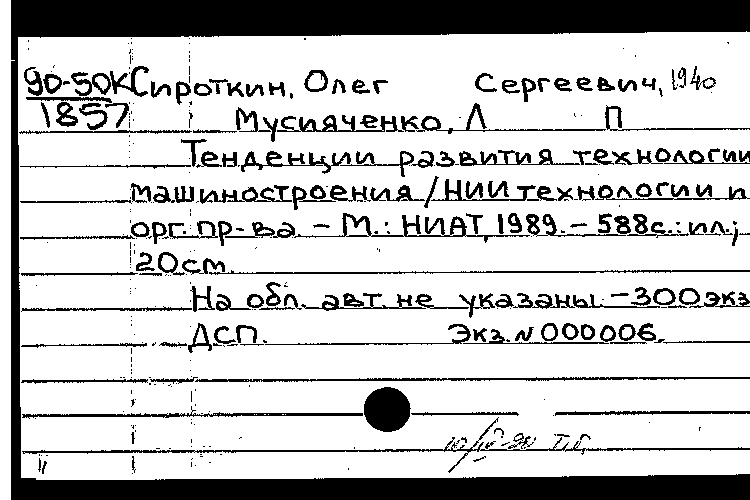 90-50К Сироткин, Олег Сергеевич, 1940
1857 Мусияченко, Л П
Тенденции развития технологии
машиностроения / НИИ технологии и
орг. пр-ва. - М.: НИАТ, 1989. - 588с.: ил.;
20см.
На обл. авт. не указаны. - 300экз
ДСП. Экз. N 000006.